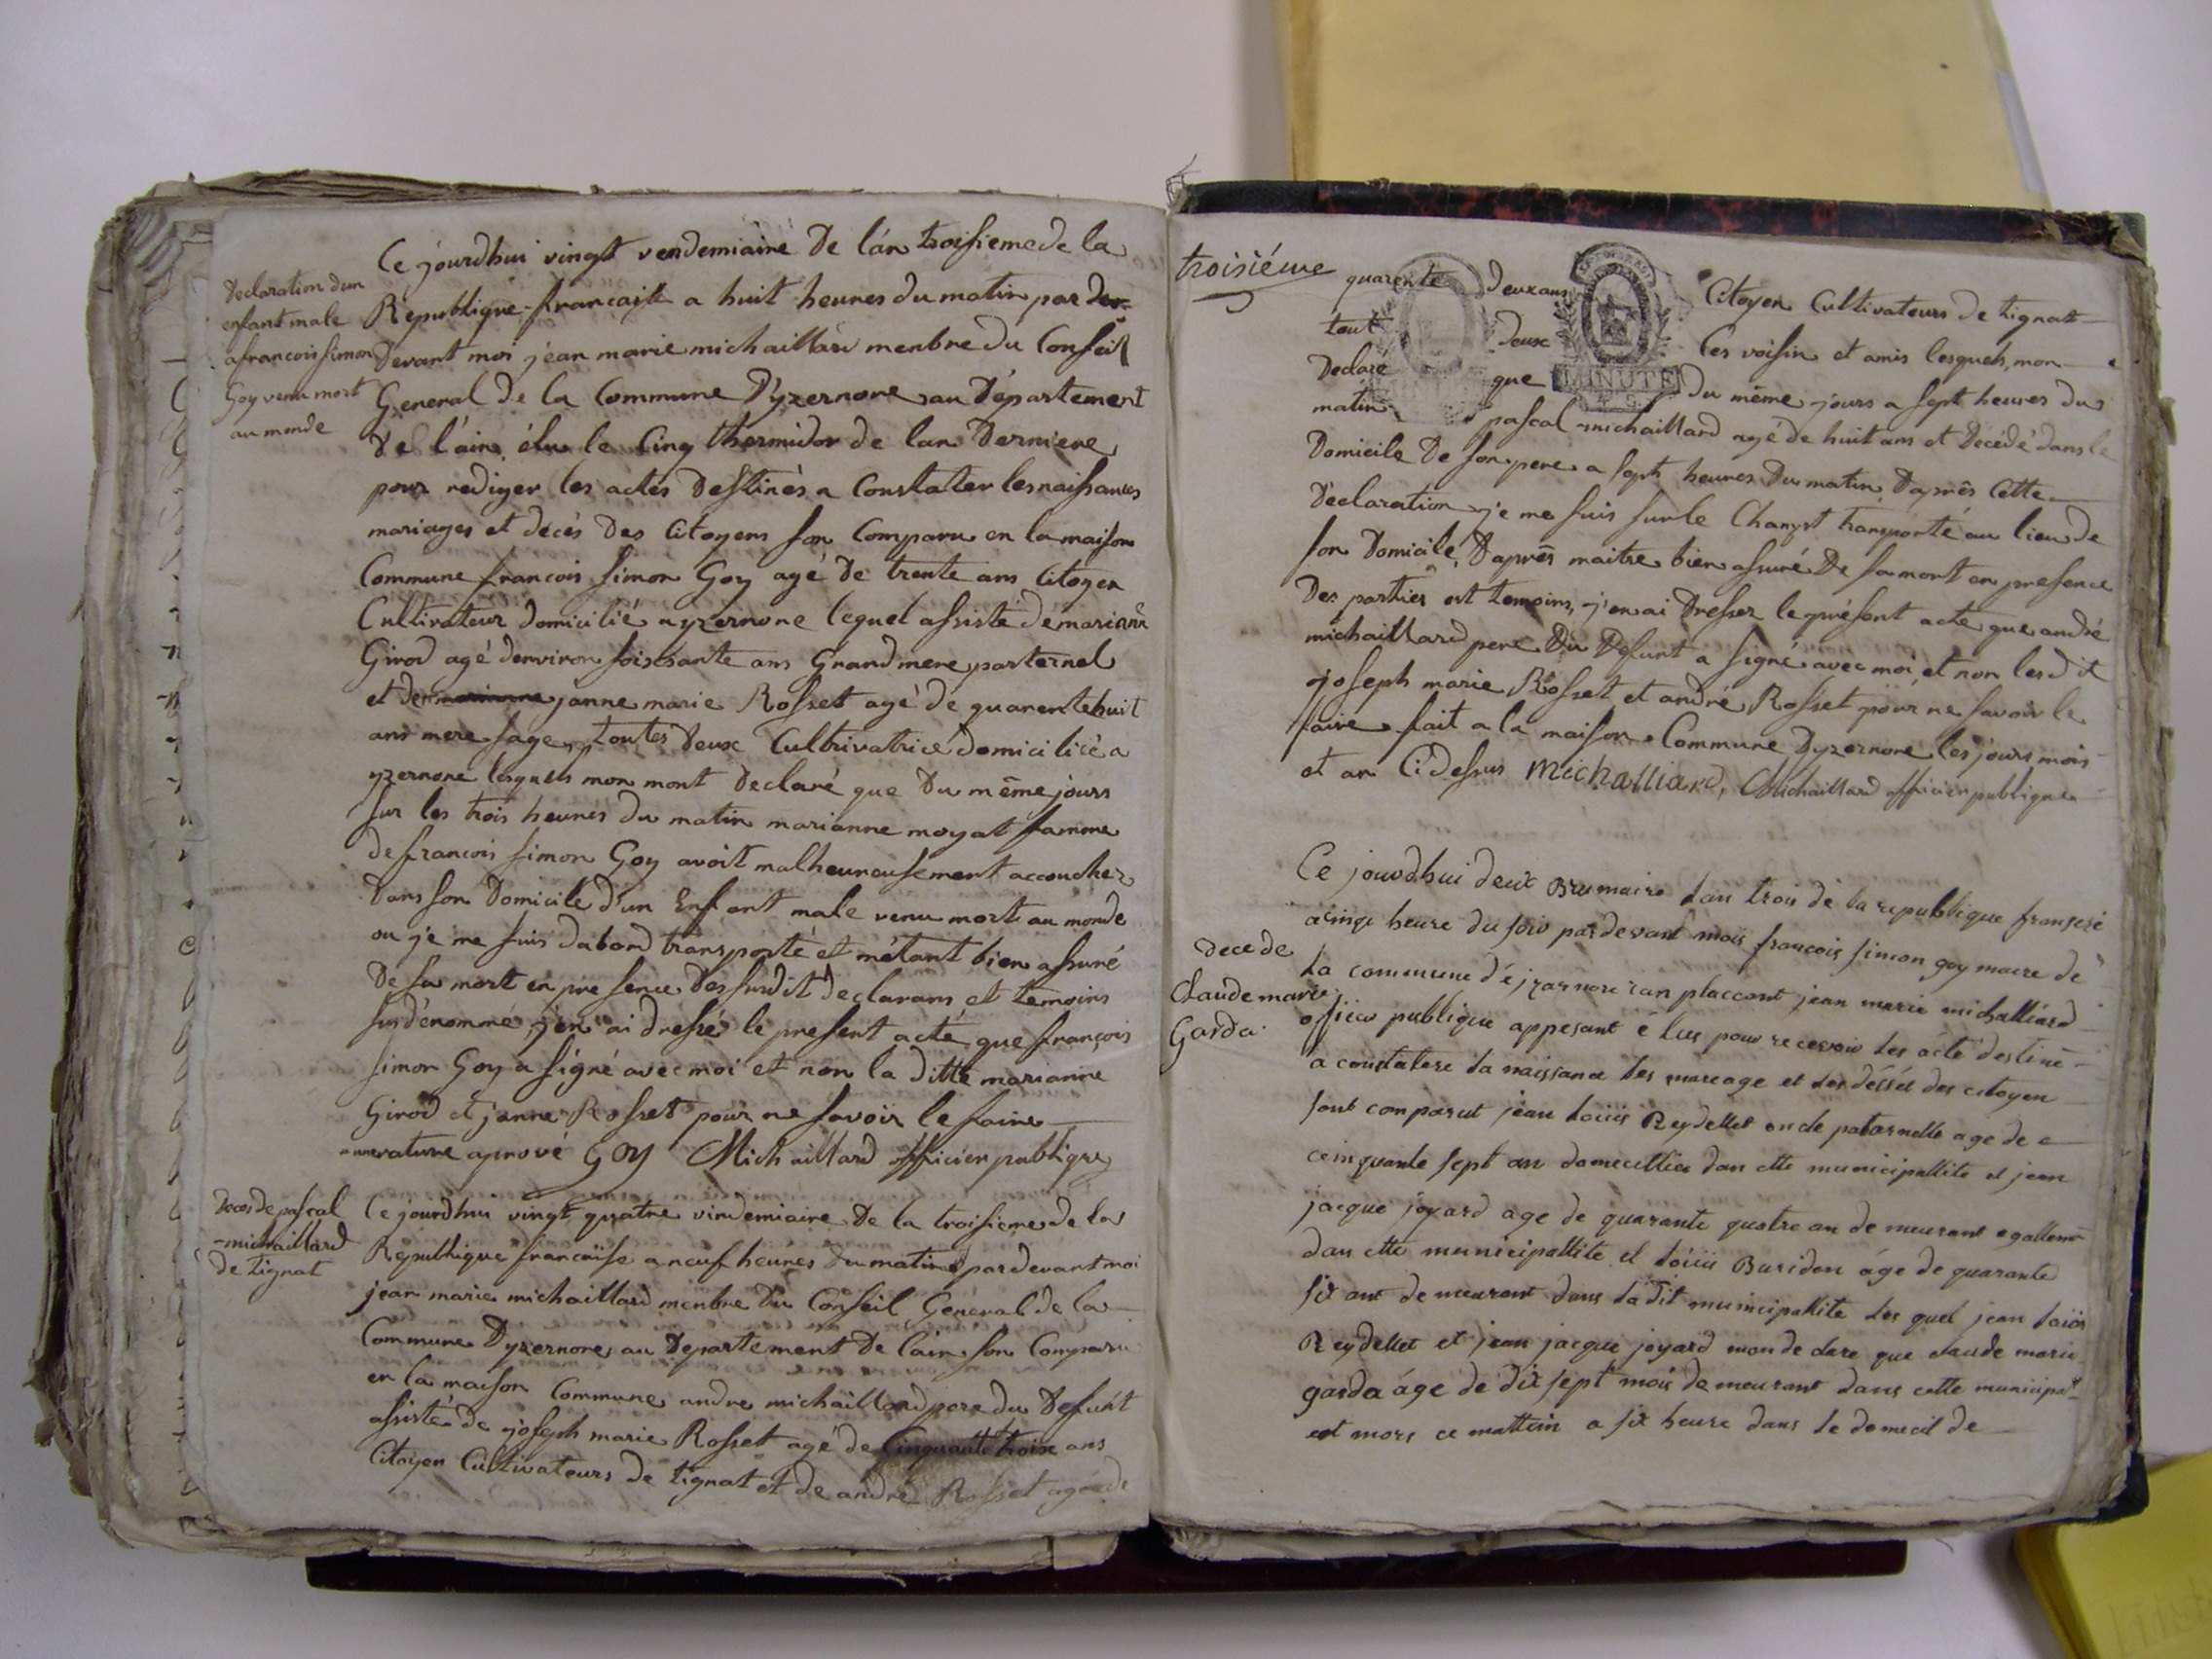 Declaration dun
enfant male
a francois simon
Goy venu mort
au monde
Ce jourdhui vingt vendemiaire De lán troisieme de la
Republique francaise a huit heures du matin par der
Devant moi jean marie michaillard menbre du Conseil
General de la Commune D'yzernore au Département
De l'áin élu le Cinq thermidor de lan Derniere
pour rediger les actes Destinés a Constater les naissances
mariages et décès Des Citoyens son Comparu en la maison
Commune francois simon Goy agé De trente ans Citoyen
Cultivateur domicilié ayzernore lequel assisté de mariann
Girod agé denviron soissante ans Grand mere parternel
et de marianne janne marie Rosset agé de quarente huit
ans mere sage, toutes Deux Cultrivatrice domicilié a
yzernore lesquels mon mont Declaré que Du même jours
sur les trois heures du matin marianne moyat famme
de francois simon Goy avoit malheureusement accouchez
Dans son Domicile d'un Enfant male venu mort au monde
ou je me suis dabord transporté et métant bien assuré
De sa mort en presence Des susdit declarans et temoins
susdénommé, j'en ai dressé le present acte que françois
simon Goy a signé avec moi et non la ditte marianne
Girod et janne Rosset pour ne savoir le faire
aprové GOY Michaillard officier publique
Deces de pascal
michaillard
de tignat
Ce jourdhui vingt quatre vindemiaire De la troisieme de la
Republique francaise a neuf heures du matin pardevant moi
jean marie michaillard menbre Du Conseil General de la
Commune Dyzernore au Departement De lain son Comparu
en la maison Commune andre michaillard pere du Defunt
assisté de joseph marie Rosset agé de Cinquante troix ans
Citoyen Cultivateurs De tignat et de andré Rosset agé de
troisiéme
quarente deux ans Citoyen Cultivateurs de tignat
tout Deux Ces voisin et amis lesquels, mon
Declaré que du même jours a sept heures du
MINUTE
matin pascal michaillard agé de huit ans et Décédé dans le
Domicile De son pere a sept heures Du matin D'après Cette
Déclaration je me suis sur le Champt transporté au lieu de
son Domicile, D'après maitre bien assuré De sa mort en presence
Des parties est temoins, j'en ai Dresser le présent acte que andré
michaillard pere Du Defunt a signé avec moi, et non lesdit
joseph marie Rosset et andré Rosset pour ne savoir le
faire fait a la maison Commune Dyzernore les jours mois
et an Ci dessus Michalliard, Michaillard officier publique
dece de
Claude marie
Garda
Ce jourdhui deux Brumaire lan trois de la republique franscse
a cinqe heure du soir pardevant mois francois simon goy maire de
la commune d'éjzarnore ran placcont jean marie michalliard
officier publique appesant é lus pour recevoir les acte destiné
a constatere la naissance les mareage et les déssés des citoyen
sont comparut jean louis Reydellet oncle paternelle age de
ceinquante sept an domecillies dan ette municipallite et jean
jacque joyard age de quarante quatre an de meurant egallemt
dan ette municipallite et louis Buriden áge de quarante
six ant de meurant dans ladit municipallite les quel jean louis
Reydellet et jean jacque joyard mon de clare que claude marie
garda áge de dix sept mois de meurant dans cette municipat
est mors ce mattin a six heure dans le domecil de